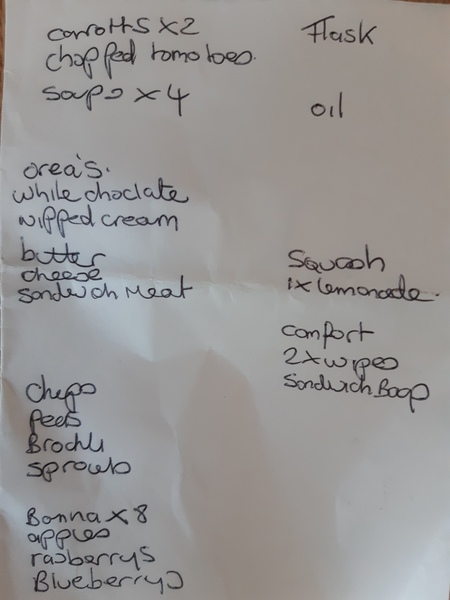 carrotts x2
chopped tomatoes.
soups x 4
orea's.
while choclate
wipped cream
butter
cheese
sandwich meat
chips
pees
Brocli
sprouts
Banna x 8
apples
rasberrys
Blueberrys
Flask
oil
Squash
1x lemonade.
comfort
2x wipes
sandwich Bags